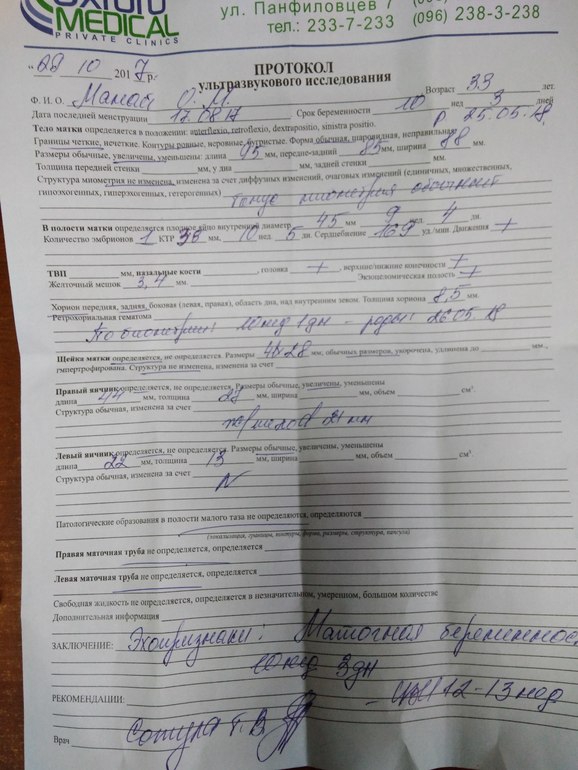 OXFORD
MEDICAL
PRIVATE CLINICS
ул. Панфиловцев 7
тел.: 233-7-233 (096) 238-3-238
"28" 10 2017 г.
ПРОТОКОЛ
ультразвукового исследования
Ф. И. О. О. М. Возраст 33 лет.
Дата последней менструации 17.08.17 Срок беременности 10 нед 3 дней
Тело матки определяется в положении: anteflexio, retroflexio, dextrapositio, sinistra positio. Р 25.05.18
Границы четкие, нечеткие. Контуры ровные, неровные, бугристые. Форма обычная, шаровидная, неправильная
Размеры обычные, увеличены, уменьшены: длина 95 мм, передне-задний 85 мм, ширина 88 мм.
Толщина передней стенки мм, у дна мм, задней стенки мм.
Структура миометрия не изменена, изменена за счет диффузных изменений, очаговых изменений (единичных, множественных,
гипоэхогенных, гиперэхогенных, гетерогенных) Тонус миометрия обычный
В полости матки определяется плодное яйцо внутренний диаметр 45 мм 9 нед. 4 дн.
Количество эмбрионов 1 КТР 38 мм, 10 нед 5 дн. Сердцебиение 169 уд./мин. Движения +
ТВП мм, назальные кости , головка + , верхние/нижние конечности +
Желточный мешок 3,4 мм. Экзцеломическая полость +
Хорион передняя, задняя, боковая (левая, правая), область дна, над внутренним зевом. Толщина хориона 8,5 мм.
Ретрохориальная гематома
По биометрии: 10 нед 1 дн - роды: 26.05.18
Шейка матки определяется, не определяется. Размеры 46-28 мм, обычных размеров, укорочена, удлинена до мм.,
гипертрофирована. Структура не изменена, изменена за счет
Правый яичник определяется, не определяется. Размеры обычные, увеличены, уменьшены
длина 44 мм, толщина 28 мм, ширина мм, объем см³.
Структура обычная, изменена за счет
21 мм
Левый яичник определяется, не определяется. Размеры обычные, увеличены, уменьшены
длина 22 мм, толщина 13 мм, ширина мм, объем см³.
Структура обычная, изменена за счет N
Патологические образования в полости малого таза не определяются, определяются
(локализация, границы, контуры, форма, размеры, структура, капсула)
Правая маточная труба не определяется, определяется
Левая маточная труба не определяется, определяется
Свободная жидкость не определяется, определяется в незначительном, умеренном, большом количестве
Дополнительная информация
ЗАКЛЮЧЕНИЕ: Эхопризнаки: Маточная беременнос
10 нед 3 дн
РЕКОМЕНДАЦИИ: 12-13 нед
Врач Т. В.